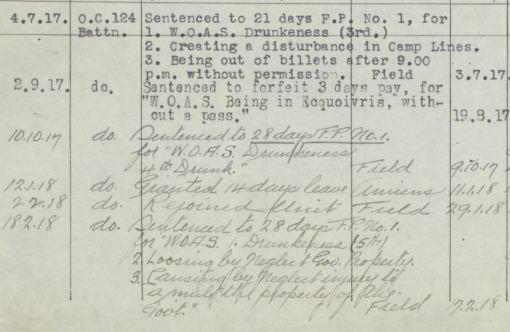 4.7.17. O.C.124 Sentenced to 21 days F.P. No. 1, for
Battn. 1. W.O.A.S. Drunkeness (3rd.)
2. Creating a disturbance in Camp Lines.
3. Being out of billets after 9.00
p.m. without permission. Field 3.7.17.
2.9.17. do. Sentenced to forfeit 3 days pay, for
"W.O.A.S. Being in Ecquoivris, with-
out a pass." 19.8.17
10.10.17 do. Sentenced to 28 days F.P. No. 1.
for "W.O.A.S. Drunkeness
4th Drunk." Field 9.10.17
12.1.18 do. Granted 14 days leave Amiens 11.1.18
2.2.18 do. Rejoined Unit Field 29.1.18
18.2.18 do. Sentenced to 28 days F.P. No. 1.
for "W.O.A.S. 1. Drunkeness (5th)
2. Loosing by Neglect Gov. Property.
3. Causing by Neglect injury to
a mule the property of the
Govt." Field 17.2.18